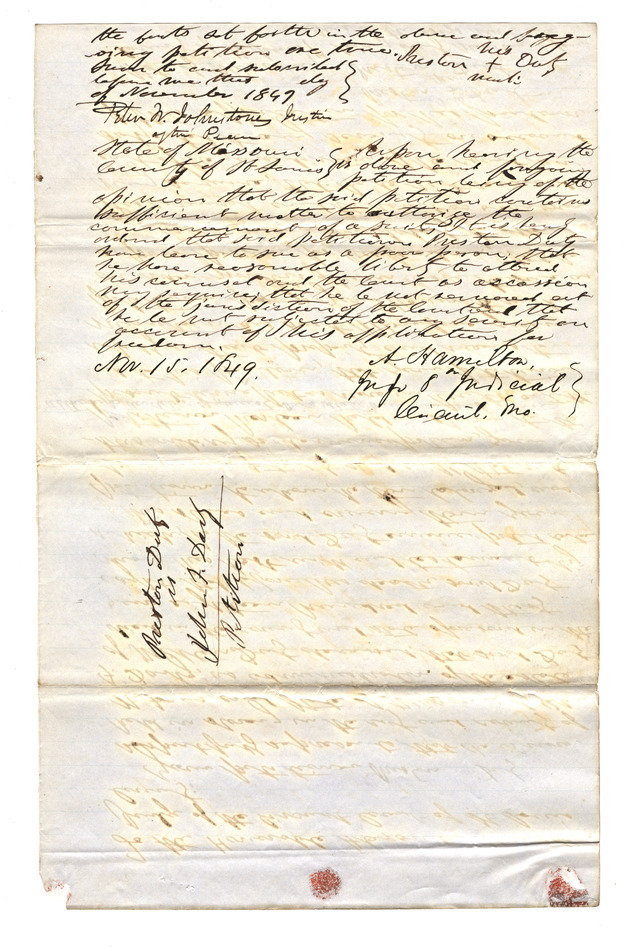 the facts set forth in the above and foreg-
oing petition are true. Preston his + Duty
mark
Sworn to and subscribed
before me this day
of November 1849
Peter W. Johnstone Justice
of the Peace
State of Missouri
County of St Louis } ss
Upon hearing the
above and foregoing
petition being of the
opinion that the said petition contains
sufficient matter to authorize the
commencement of a suit, it is hereby
ordered that said petitioner Preston Duty
have leave to sue as a poor person, that
he have reasonable liberty to attend
his counsel and the court as occasion
may require, that he be not removed out
of the jurisdiction of the court and that
he be not subjected to any severity on
account of this application for
freedom.
Nov. 15. 1849.
A. Hamilton,
Judge 8th Judicial
Circuit. Mo.
Preston Duty
vs
John F. Darby
Petition